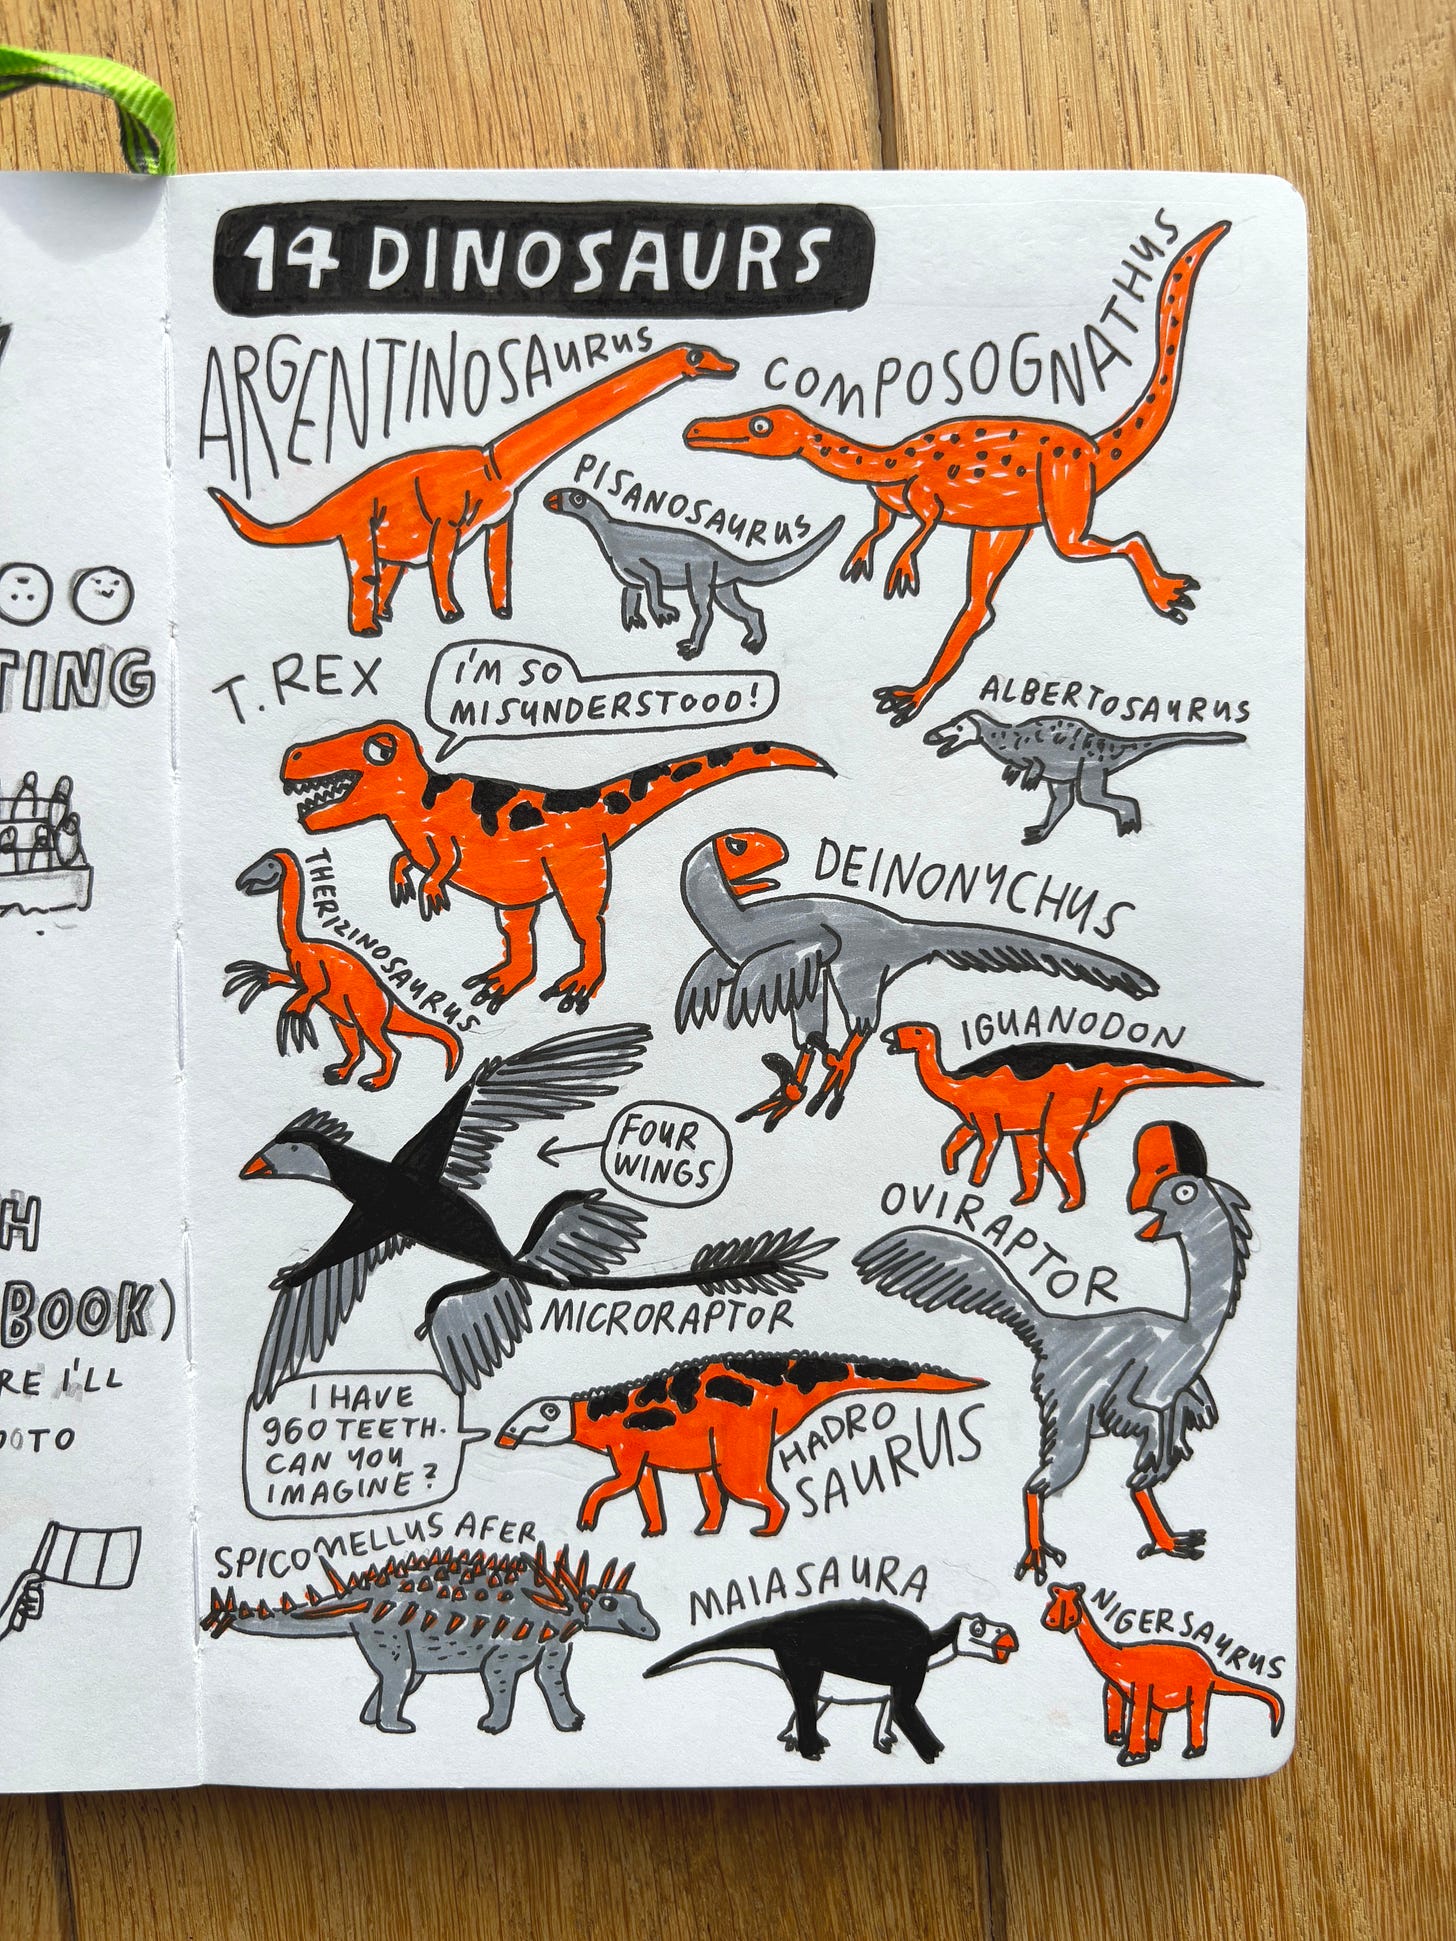 14 DINOSAURS
ARGENTINOSAURUS
COMPOSOGNATHUS
PISANOSAURUS
T. REX
I'M SO
MISUNDERSTOOD!
ALBERTOSAURUS
THERIZINOSAURUS
DEINONYCHUS
IGUANODON
FOUR
WINGS
OVIRAPTOR
MICRORAPTOR
I HAVE
960 TEETH.
CAN YOU
IMAGINE?
HADRO
SAURUS
SPICOMELLUS AFER
MAIASAURA
NIGERSAURUS
TING
H
BOOK)
RE I'LL
OTO